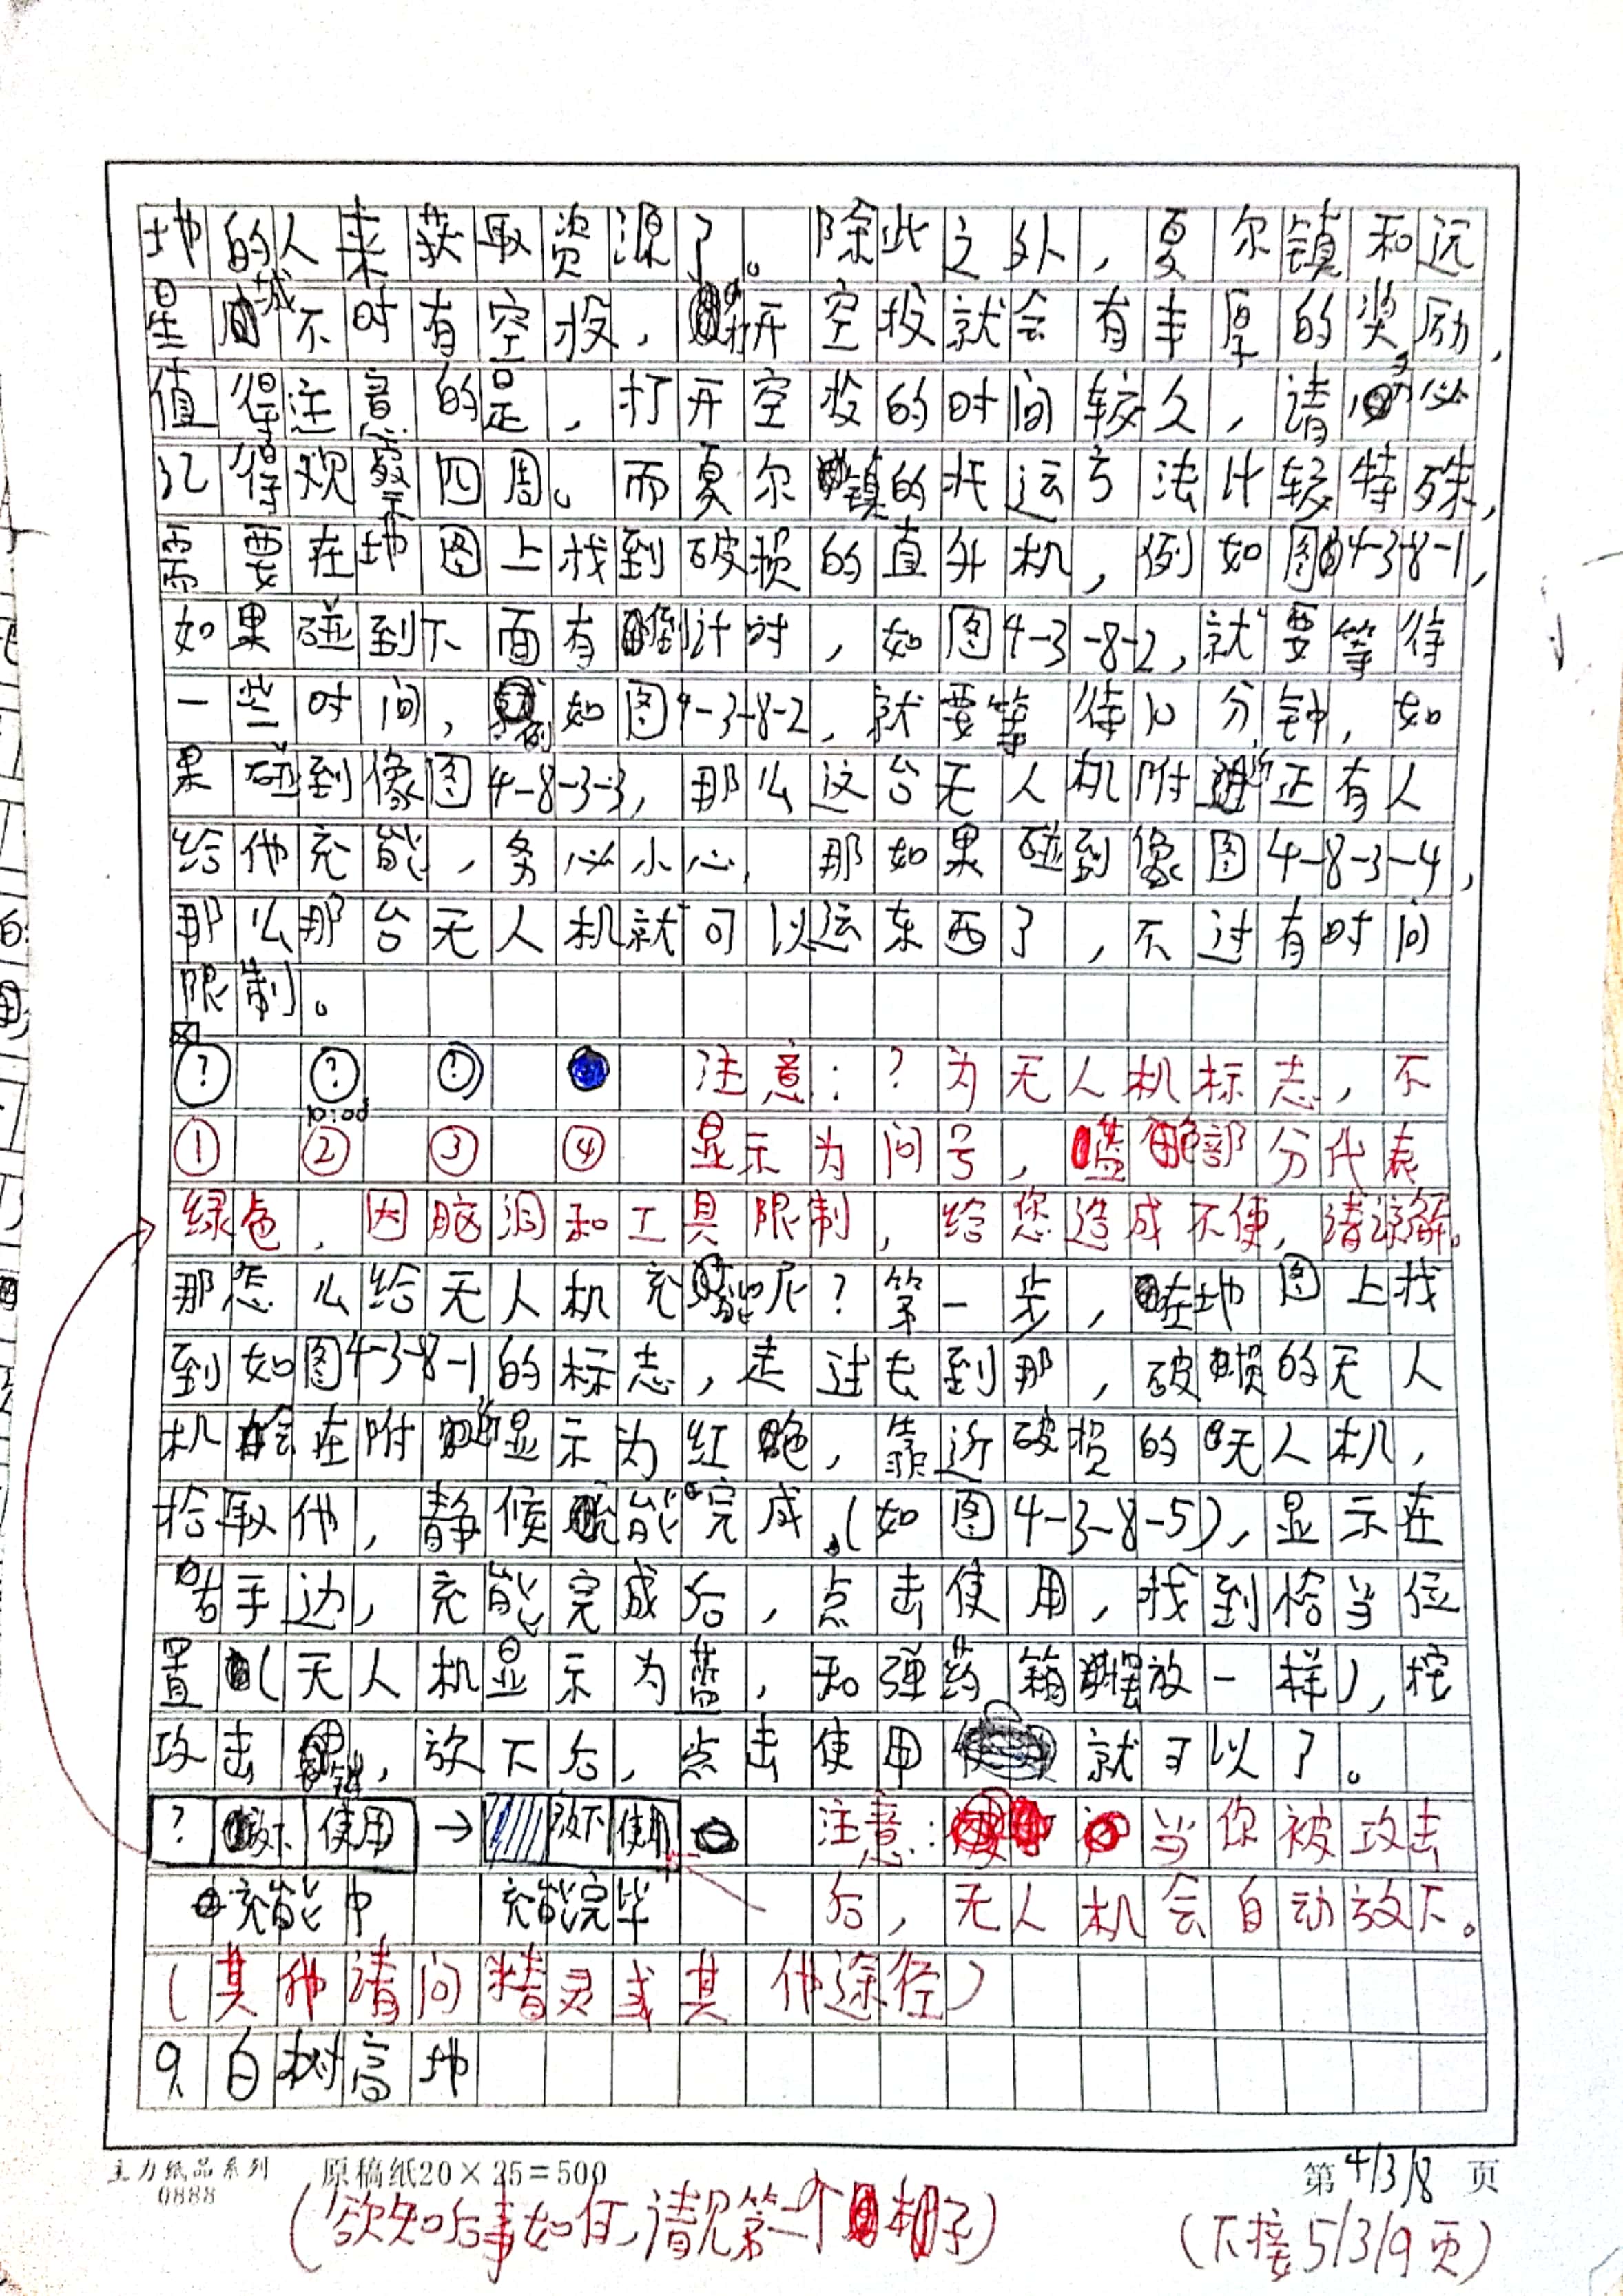 地的人来获取资源了。除此之外，夏尔镇和远
星城不时有空投，打开空投就会有丰厚的奖励，
值得注意的是，打开空投的时间较久，请务必
记得观察四周。而夏尔镇的托运方法计较特殊，
需要在地图上找到破损的直升机，例如图4-3-8-1，
如果碰到下面有倒计时，如图4-3-8-2，就要等待
一些时间，例如图4-3-8-2，就要等待10分钟，如
果碰到像图4-8-3-3，那么这台无人机附近正有人
给他充能，务必小心，那如果碰到像图4-8-3-4，
那么那台无人机就可以运东西了，不过有时间
限制。
? ? ! 注意：？为无人机标志，不
10:00
① ② ③ ④ 显示为问号，蓝色部分代表
绿色，因脑洞和工具限制，给您造成不便，请谅解。
那怎么给无人机充能呢？第一步，在地图上找
到如图4-3-8-1的标志，走过去到那，破损的无人
机会在附近显示为红色，靠近破损的无人机，
拾取他，静候充能完成（如图4-3-8-5），显示在
右手边，充能完成后，点击使用，找到恰当位
置（无人机显示为蓝，和弹药箱摆放一样），按
攻击键，放下后，点击使用就可以了。
? 放下 使用 → 放下 使用 注意：当你被攻击
充能中 充能完毕 后，无人机会自动放下。
（其他请问精灵或其他途径）
9.白树高地
主力纸品系列 原稿纸20×25=500 第4/3/8页
0888
（欲知后事如何，请见第一个本子） （下接5/3/9页）